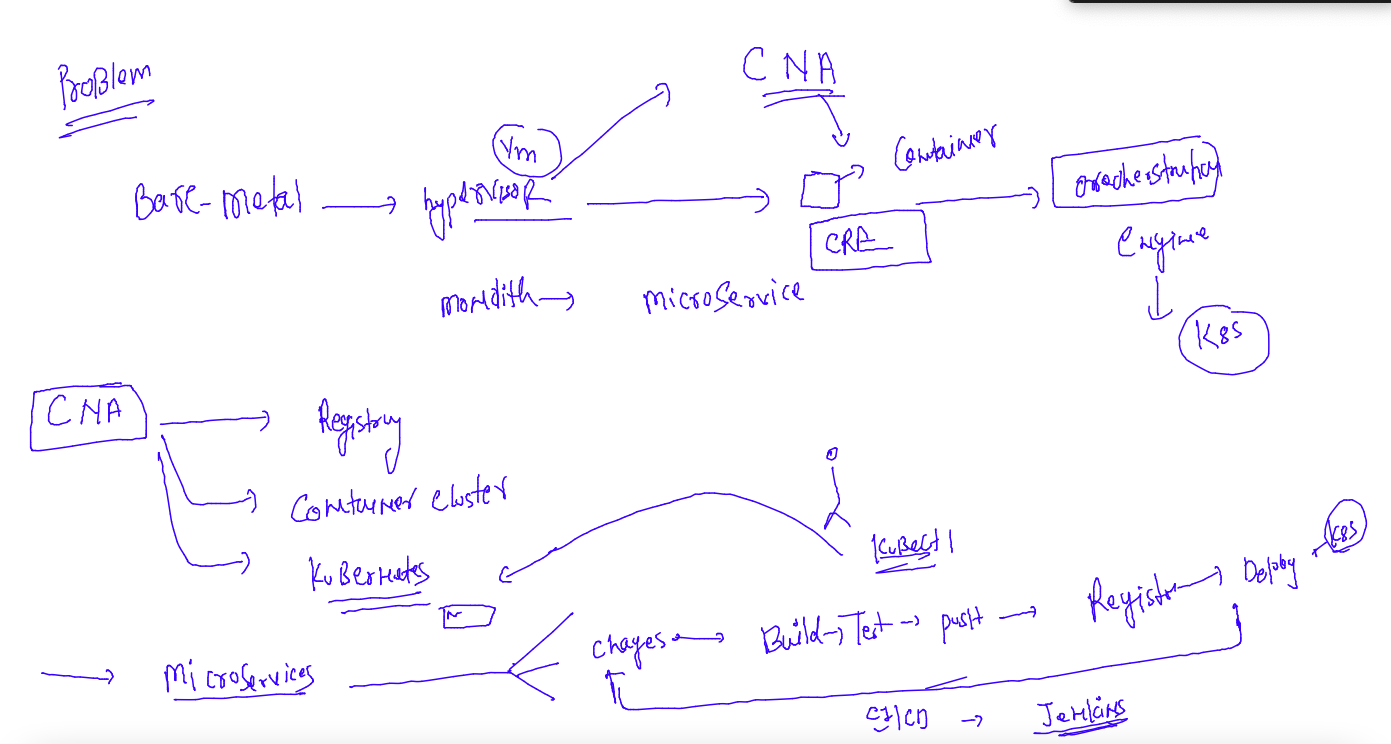 ProBlem
CNA
Vm
Container
Bare-metal → hypervisor
orachestration
CRE
Engine
monolith → microservice
K8S
CNA
Registry
Container cluster
KuBernetes
KuBectl
K8S
Microservices
chages → Build → Test → push → Registr → Deploy
CI/CD → Jenkins